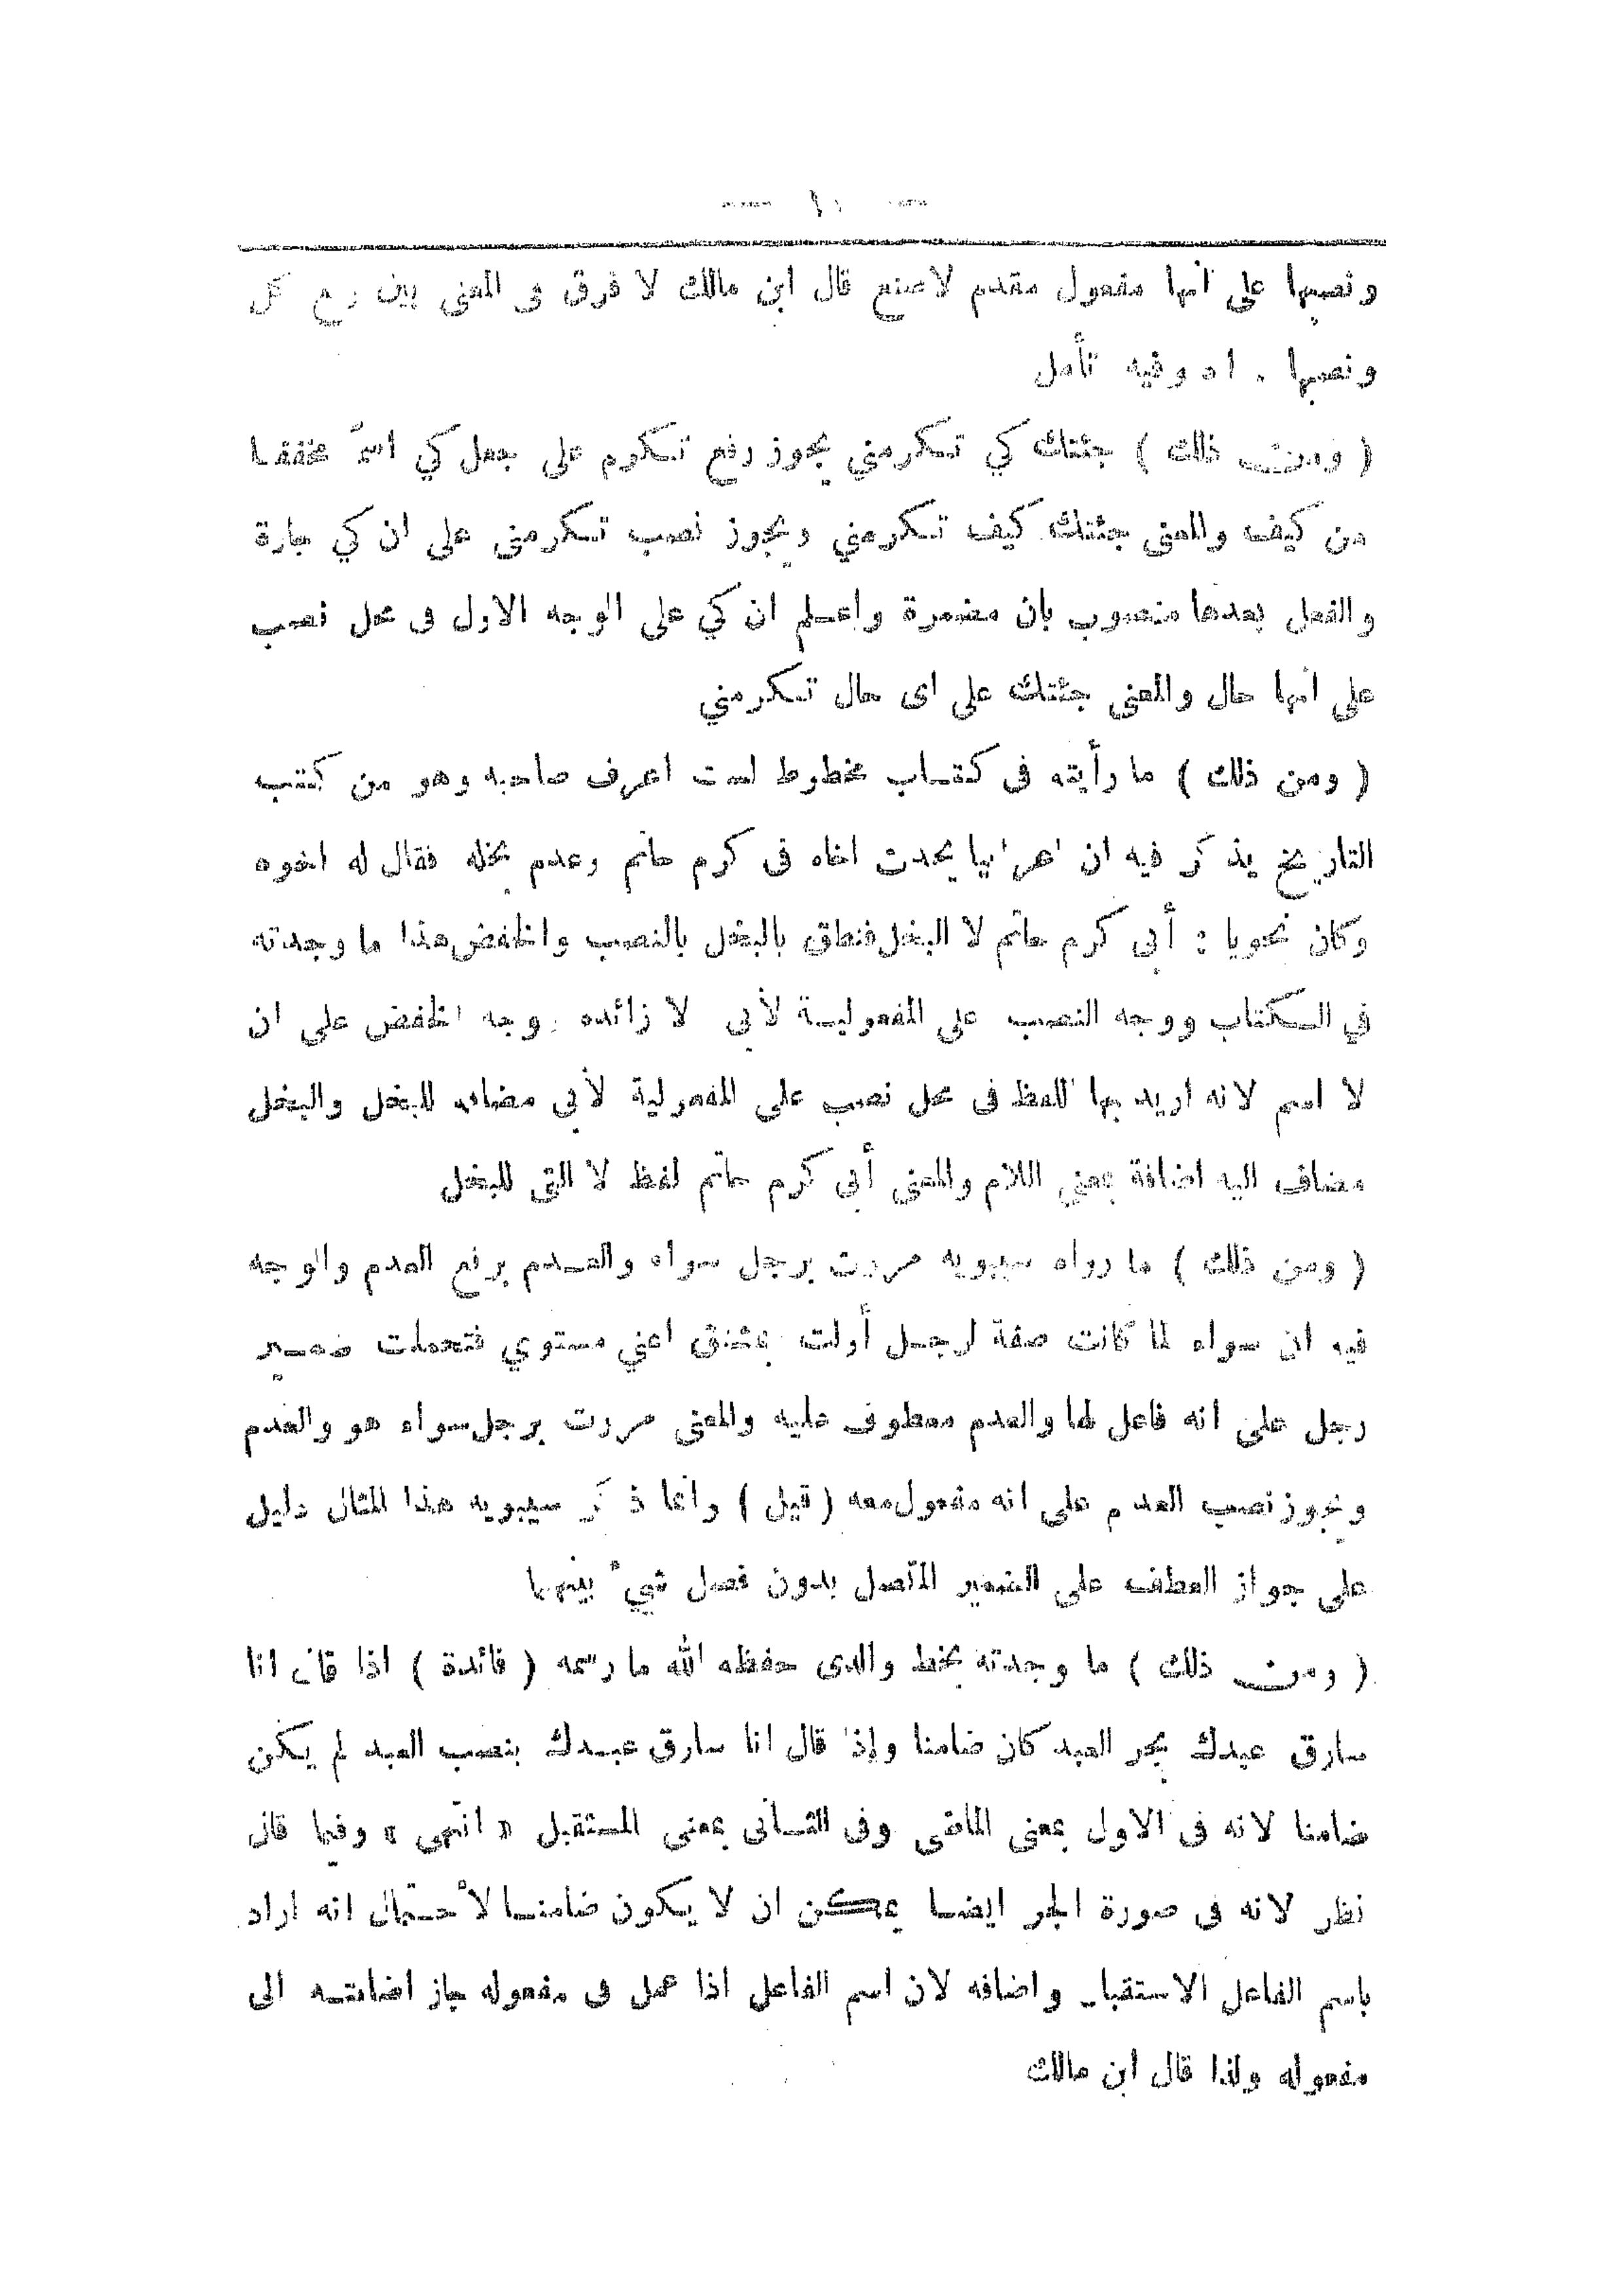 — ١٠ —
ونصبها على انها مفعول مقدم لاصنع قال ابن مالك لا فرق فى المعنى بين رفع كل
ونصبها . اه وفيه تأمل
( ومن ذلك ) جئتك كي تكرمني يجوز رفع تكرم على جعل كي اسمً مخففا
من كيف والمعنى جئتك كيف تكرمني ويجوز نصب تكرمنى على ان كي جارة
والفعل بعدها منصوب بان مضمرة واعلم ان كي على الوجه الاول فى محل نصب
على انها حال والمعنى جئتك على اى حال تكرمني
( ومن ذلك ) ما رأيته فى كتاب مخطوط لست اعرف صاحبه وهو من كتب
التاريخ يذكر فيه ان اعرابيا يحدث اخاه فى كرم حاتم وعدم بخله فقال له اخوه
وكان نحويا : أبى كرم حاتم لا البخل فنطق بالبخل بالنصب والخفض هذا ما وجدته
في الكتاب ووجه النصب على المفعولية لأبى لا زائده ووجه الخفض على ان
لا اسم لانه اريد بها اللفظ فى محل نصب على المفعولية لأبى مضاف للبخل والبخل
مضاف اليه اضافة بمعنى اللام والمعنى أبى كرم حاتم لفظ لا التى للبخل
( ومن ذلك ) ما رواه سيبويه مررت برجل سواه والعدم برفع العدم والوجه
فيه ان سواه لما كانت صفة لرجل أولت بمشتق اعني مستوي فتحملت ضمير
رجل على انه فاعل لها والعدم معطوف عليه والمعنى مررت برجل سواه هو والعدم
ويجوز نصب العدم على انه مفعول معه ( قيل ) وانما ذكر سيبويه هذا المثال دليل
على جواز العطف على الضمير المتصل بدون فصل شيء بينهما
( ومن ذلك ) ما وجدته بخط والدى حفظه الله ما رسمه ( فائدة ) اذا قال انا
سارق عبدك بجر العبد كان ضامنا وإذا قال انا سارق عبدك بنصب العبد لم يكن
ضامنا لانه فى الاول بمعنى الماضى وفى الثانى بمعنى المستقبل « انتهى » وفيما قال
نظر لانه فى صورة الجر ايضا يمكن ان لا يكون ضامنا لأحتمال انه اراد
باسم الفاعل الاستقبال واضافه لان اسم الفاعل اذا عمل فى مفعوله جاز اضافته الى
مفعوله ولذا قال ابن مالك